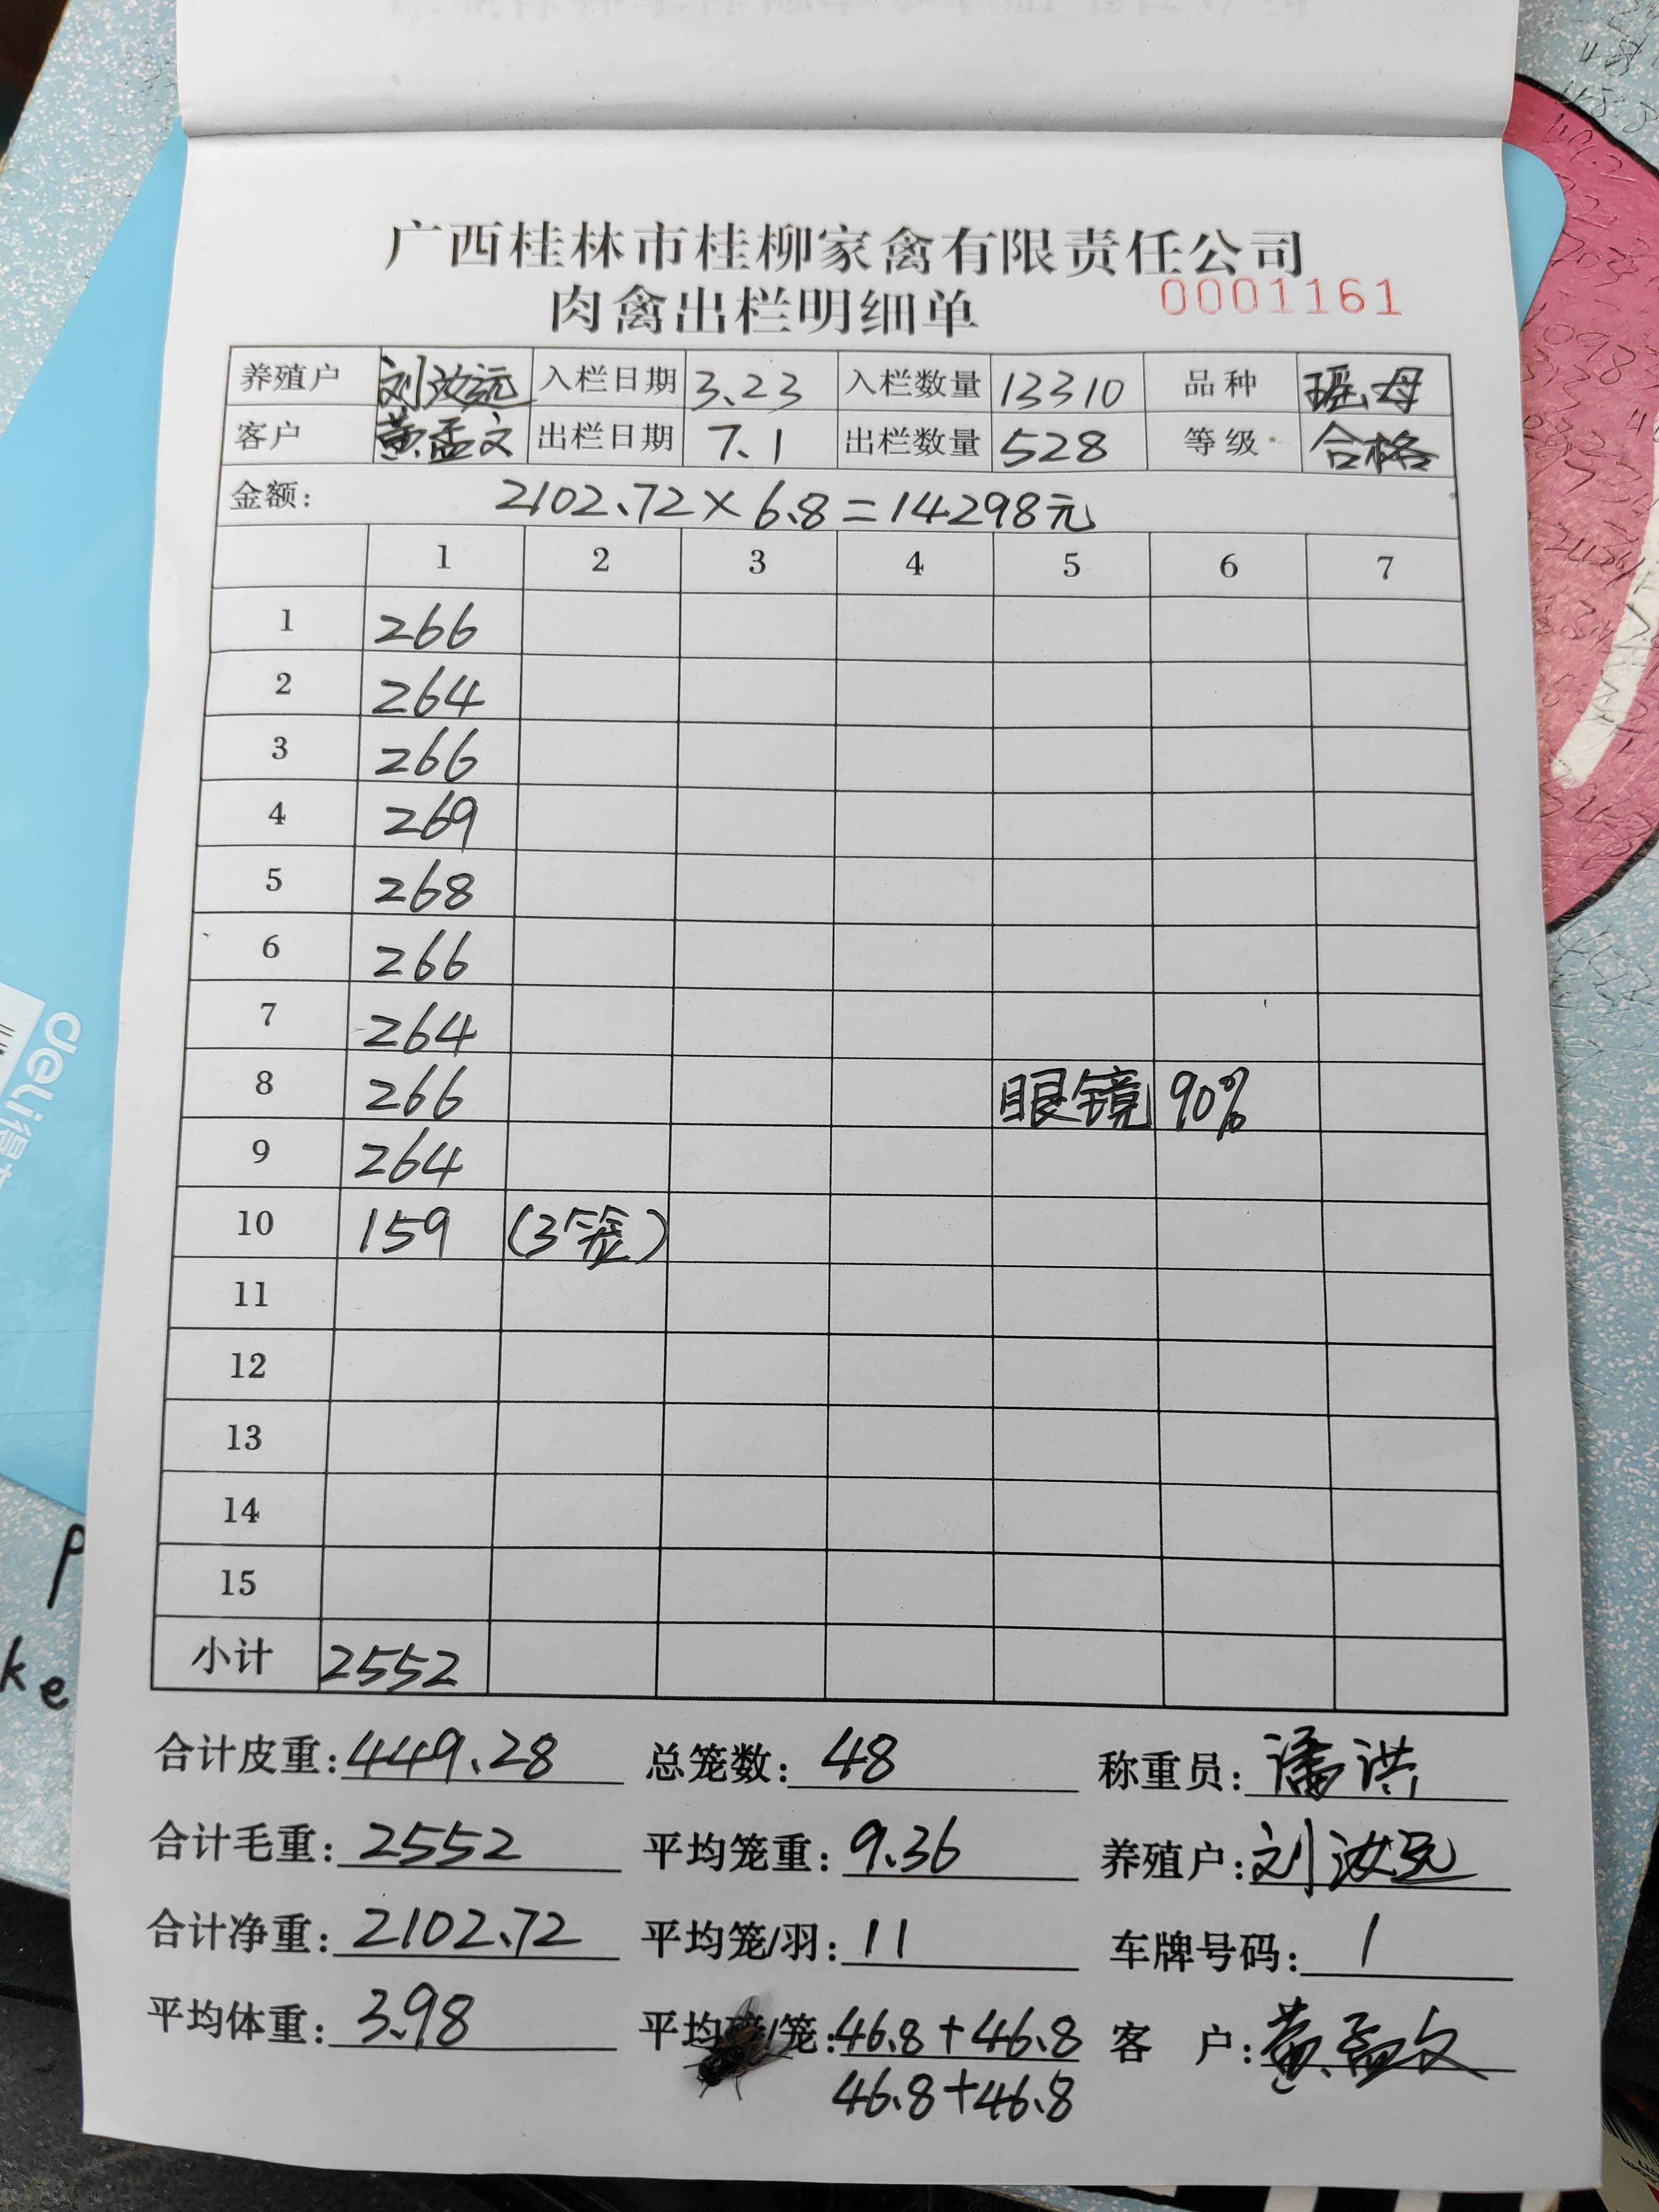 广西桂林市桂柳家禽有限责任公司
肉禽出栏明细单 0001161
养殖户 刘汝远 入栏日期 3.23 入栏数量 13310 品种 瑶母
客户 黄孟文 出栏日期 7.1 出栏数量 528 等级 合格
金额: 2102.72×6.8=14298元
1 2 3 4 5 6 7
1 266
2 264
3 266
4 269
5 268
6 266
7 264
8 266 眼镜 90%
9 264
10 159 (3笼)
11
12
13
14
15
小计 2552
合计皮重: 449.28 总笼数: 48 称重员: 潘洪
合计毛重: 2552 平均笼重: 9.36 养殖户: 刘汝远
合计净重: 2102.72 平均笼/羽: 11 车牌号码: 1
平均体重: 3.98 平均/笼: 46.8+46.8 客户: 黄孟文
46.8+46.8
deli得力